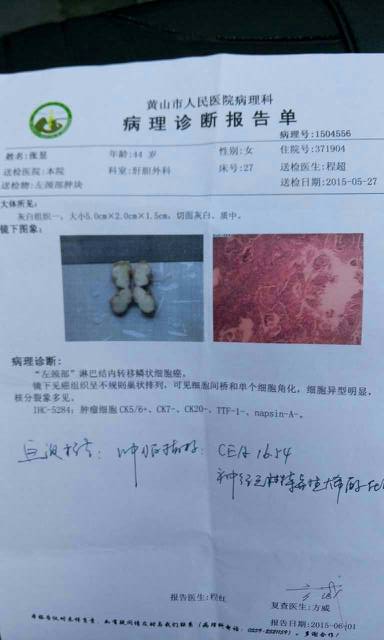 黄山市人民医院病理科
病理诊断报告单
病理号:1504556
姓名:张显 年龄:44 岁 性别:女 住院号:371904
送检医院:本院 科室:肝胆外科 床号:27 送检医生:程超
送检物:左颈部肿块 送检日期:2015-05-27
大体所见:
灰白组织一,大小5.0cm×2.0cm×1.5cm,切面灰白、质中。
镜下图象:
病理诊断:
“左颈部”淋巴结内转移鳞状细胞癌。
镜下见癌组织呈不规则巢状排列,可见细胞间桥和单个细胞角化,细胞异型明显,
核分裂象多见。
IHC-5284:肿瘤细胞CK5/6+、CK7-、CK20-、TTF-1-、napsin-A-。
肿瘤指标: CEA 16.54
神经元特异性烯醇
报告医生:程红
复查医生:方威
报告日期:2015-06-01